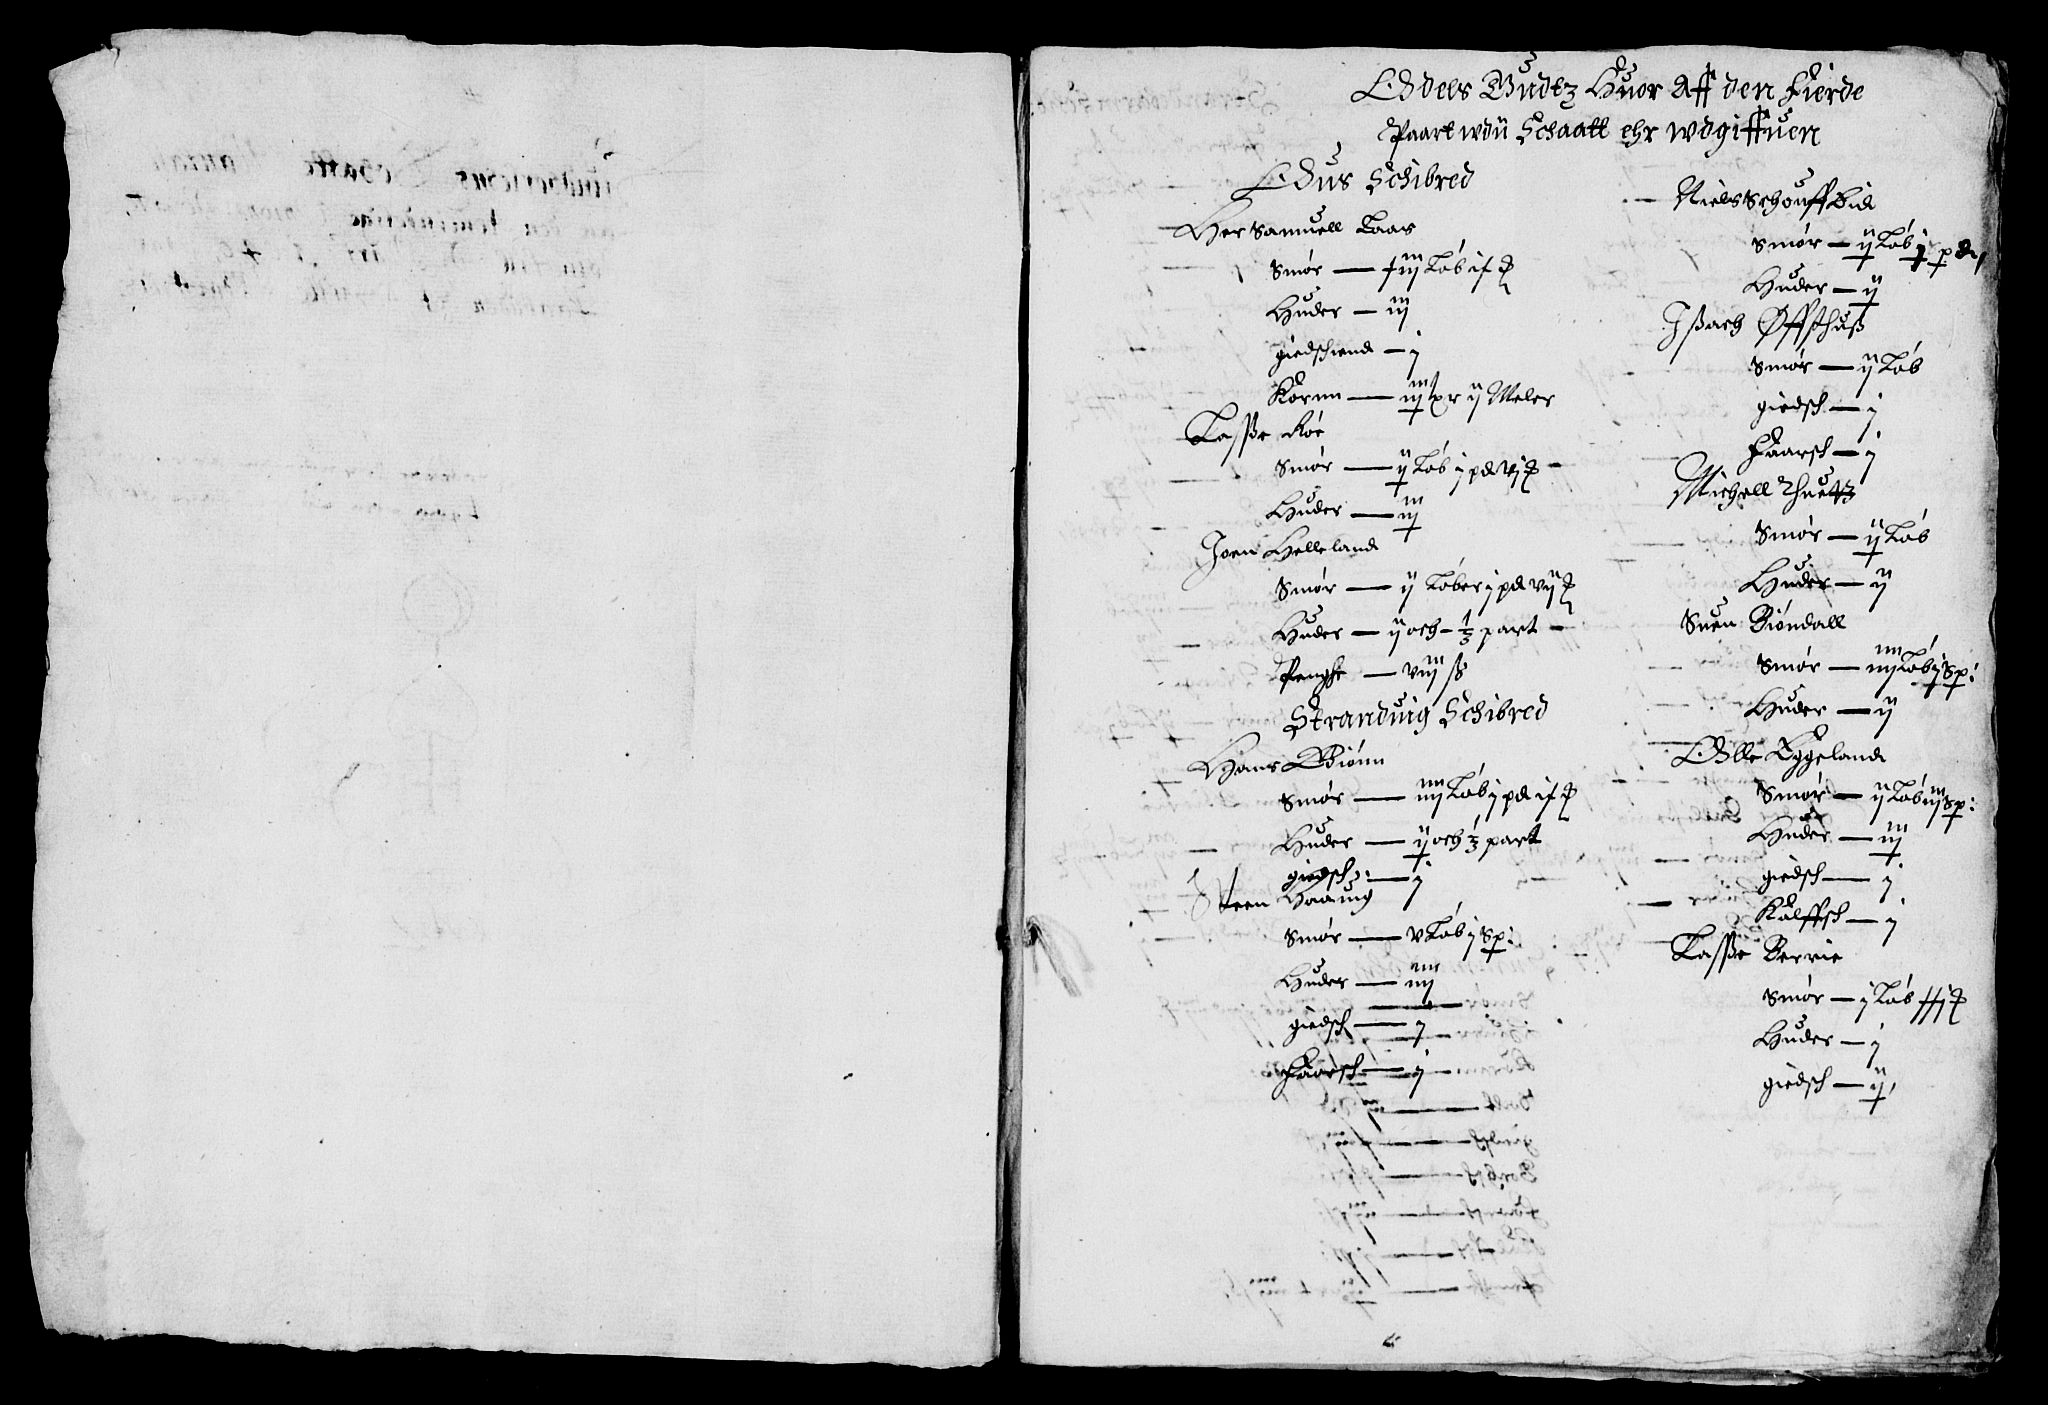 Oddels Gudtz Huor Aff den Fierde
Paart wdü Schaatt ehr wdgiffuen
Odüs Schibred
Her Samuell Laas
Smør — iij Løb
Huder — iij
giedschend — j
Kornn — ij Meler
Lasse Røe
Smør — ij Løb j pd vj
Huder — iij
Joen Helleland
Smør — ij Løber j pd vij
Huder — ij och ⅓ part
Penghe — viij ß
Strandüig Schibred
Hans Biønn
Smør — iiij Løb j pd
Huder — ij och ⅓ part
giedsch: — j
Steen Haaüig
Smør — v Løb j Sp:
Huder — iiij
giedsch — j
Faarsch — j
Niels Schouffbid
Smør — ij Løb j pd
Huder — ij
Jßach Øffsthuß
Smør — ij Løb
giedsch — j
Faarsch — j
Michell
Smør — ij Løb
Huder — ij
Suen Biøndall
Smør — iiij Løb j Sp:
Huder — ij
Olle Eggeland
Smør — ij Løb iij Sp:
Huder — iij
giedsch — j
Kalffsch — j
Lasse Berrie
Smør — j Løb
Huder — j
giedsch — ij